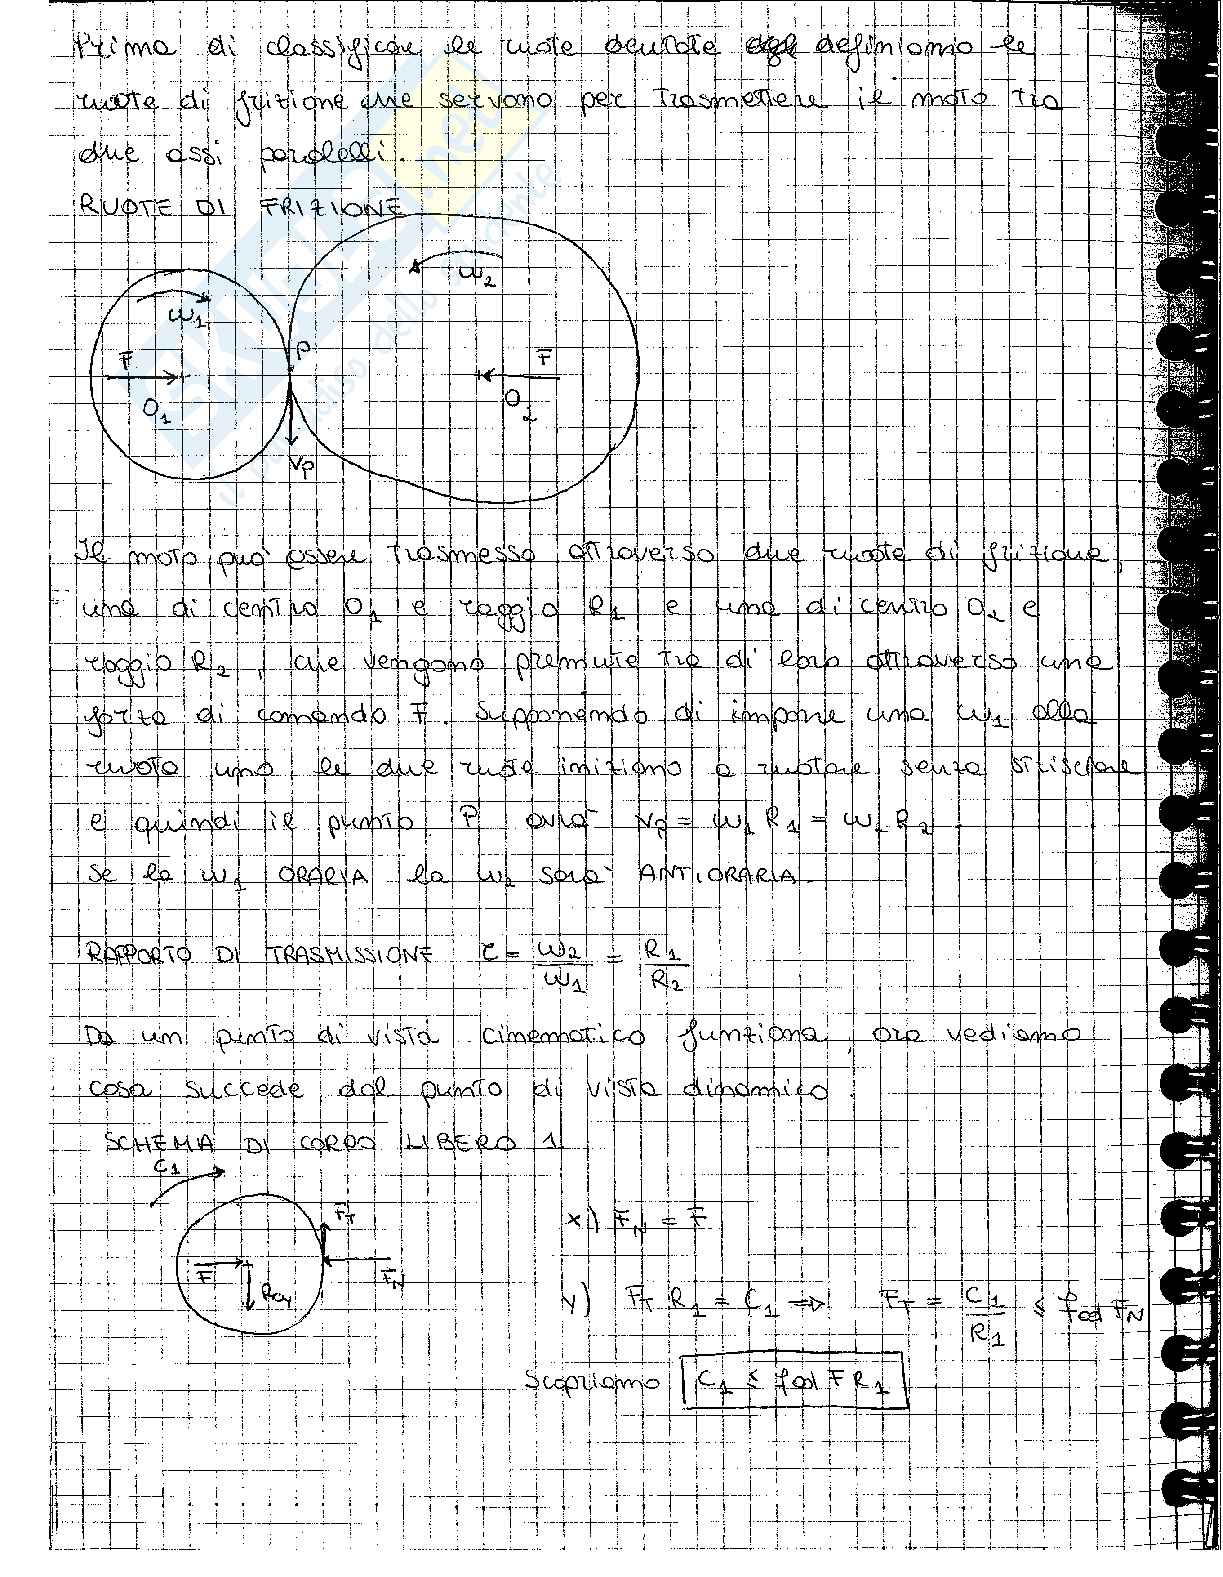 Prima di classificare le ruote dentate definiamo le
ruote di frizione che servono per trasmettere il moto tra
due assi paralleli.
RUOTE DI FRIZIONE
ω2
ω1
P
F
F
O1
O2
Vp
Il moto può essere trasmesso attraverso due ruote di frizione,
una di centro O1 e raggio R1 e una di centro O2 e
raggio R2, che vengono premute tra di loro attraverso una
forza di comando F. Supponendo di imporre una ω1 alla
ruota uno le due ruote iniziano a ruotare senza strisciare
e quindi il punto P avrà Vp = ω1 R1 = ω2 R2.
Se la ω1 ORARIA la ω2 sarà ANTIORARIA.
RAPPORTO DI TRASMISSIONE τ = ω2/ω1 = R1/R2
Da un punto di vista cinematico funziona, ora vediamo
cosa succede dal punto di vista dinamico.
SCHEMA DI CORPO LIBERO 1
C1
FT
F
FN
ROy
x) FN = F
y) FT R1 = C1 => FT = C1/R1 ≤ fad FN
Scopriamo C1 ≤ fad F R1